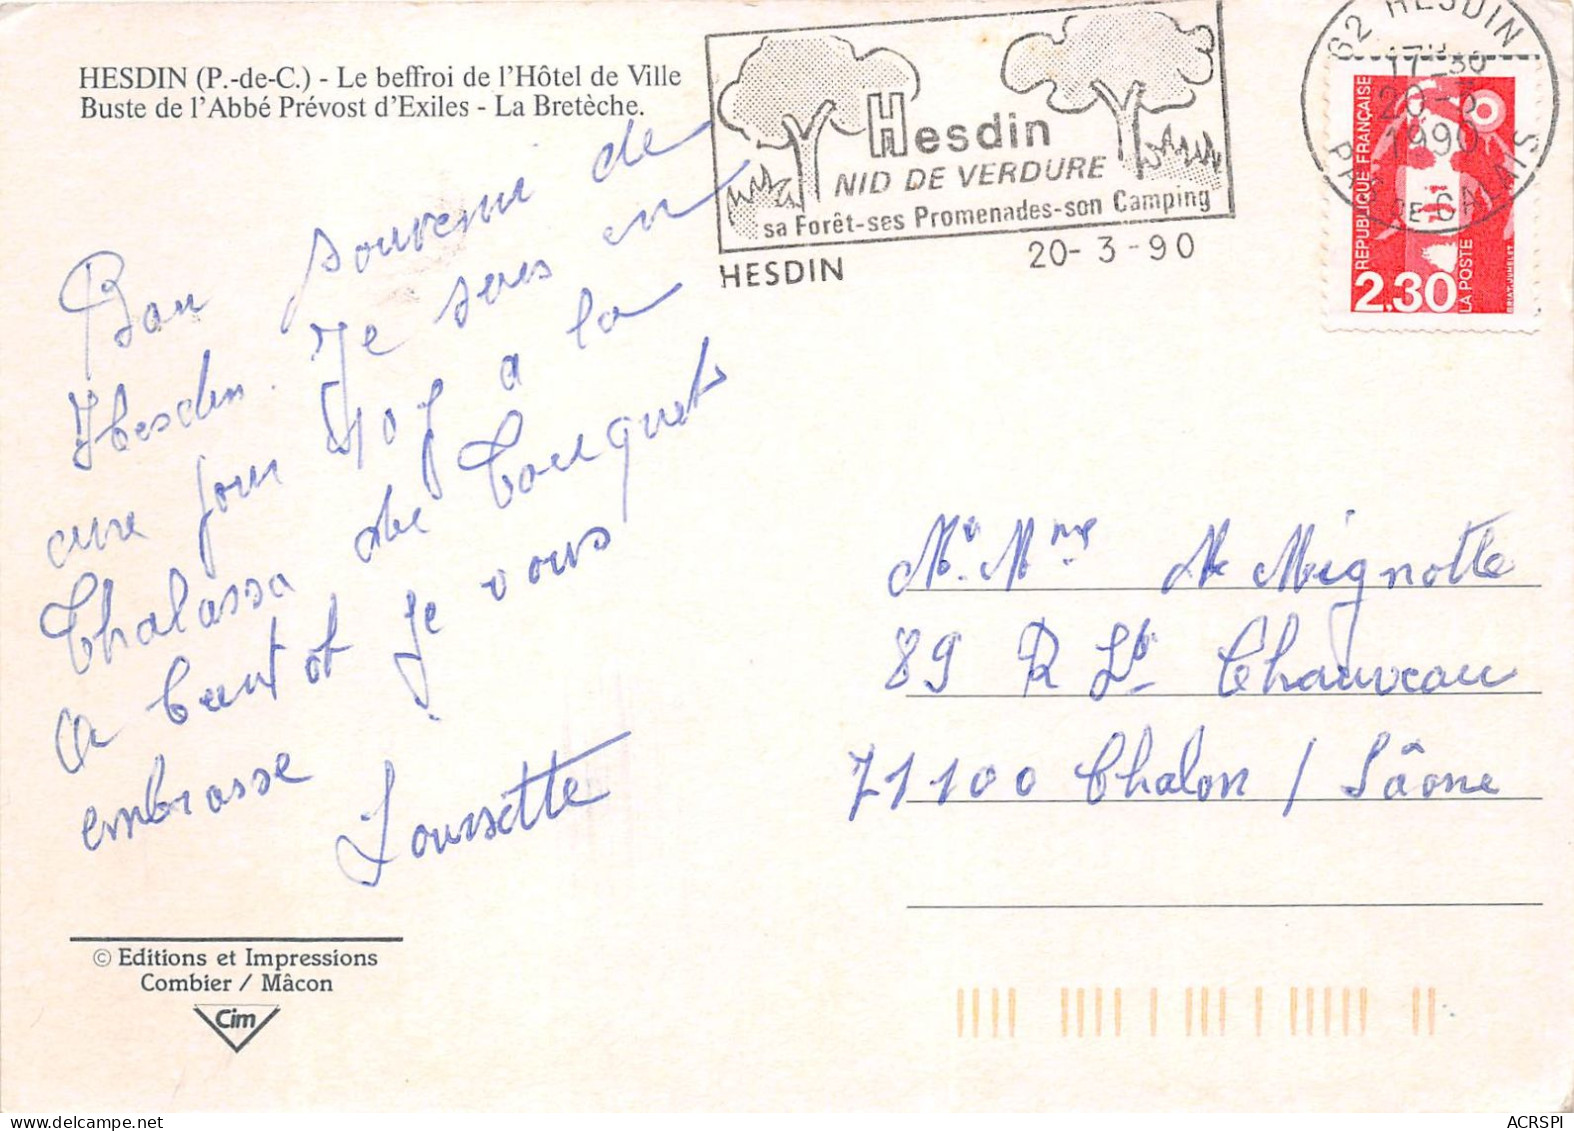 HESDIN (P.-de-C.) - Le beffroi de l'Hôtel de Ville
Buste de l'Abbé Prévost d'Exiles - La Bretèche.
Hesdin
NID DE VERDURE
sa Forêt-ses Promenades-son Camping
HESDIN 20-3-90
62 HESDIN
17-30
20-3
1990
PAS DE CALAIS
REPUBLIQUE FRANÇAISE
2,30
LA POSTE
BRIAT.JUMELET
Bon souvenir de
Hesdin. Je suis en
cure pour à la
Thalassa de Touquet
a bientot Je vous
embrasse
Mr. Mme Mignotte
89 R Lt Chauveau
71100 Chalon / Saône
© Editions et Impressions
Combier / Mâcon
Cim
ACRSPI